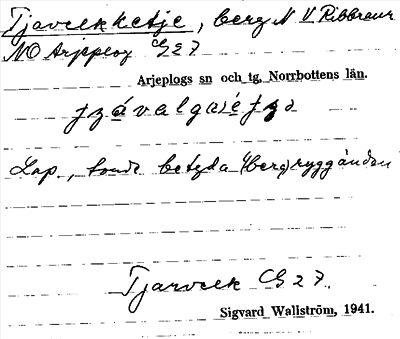 Tjavelkketje, berg N V Ribbraur
NO Arjeplog C G 27
Arjeplogs sn och tg, Norrbottens län.
Lap., torde betyda (berg)ryggändan
Tjarvelk C G 27.
Sigvard Wallström, 1941.